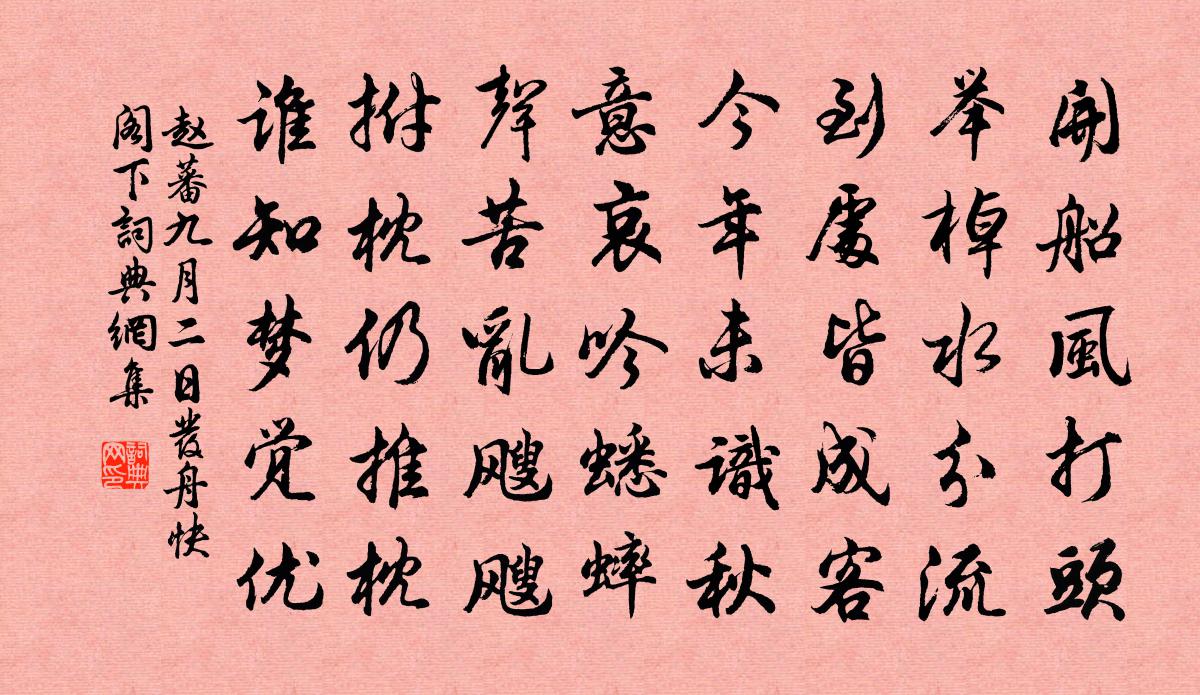 開船風打頭
举棹水分流
到處皆成客
今年未識秋
意哀吟蟋蟀
聲苦亂飕飕
拊枕仍推枕
谁知梦觉优
赵蕃九月二日發舟快
阁下詞典網集
詞典网印